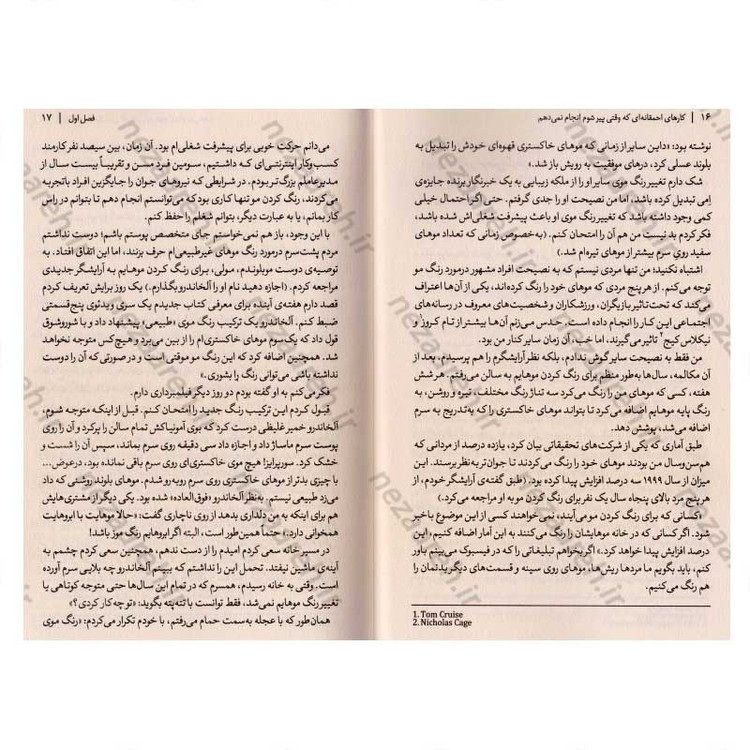 ۱۶ | کارهای احمقانه‌ای که وقتی پیر شوم انجام نمی‌دهم
نوشته بود: «داین سایر از زمانی که موهای خاکستری قهوه‌ای خودش را تبدیل به
بلوند عسلی کرد، درهای موفقیت به رویش باز شد.»
شک دارم تغییر رنگ موی سایر او را از ملکه زیبایی به یک خبرنگار برنده جایزه‌ی
اِمی تبدیل کرده باشد، اما من نصیحت او را جدی گرفتم. حتی اگر احتمال خیلی
کمی وجود داشته باشد که تغییر رنگ موی او باعث پیشرفت شغلی‌اش شده باشد،
فکر کردم بد نیست من هم آن را امتحان کنم. (به‌خصوص زمانی که تعداد موهای
سفید روی سرم بیشتر از موهای تیره‌ام شد.)
اشتباه نکنید؛ من تنها مردی نیستم که به نصیحت افراد مشهور درمورد رنگ مو
توجه می‌کنم. از هر پنج مردی که موهای خود را رنگ کرده‌اند، یکی از آن‌ها اعتراف
می‌کند که تحت‌تاثیر بازیگران، ورزشکاران و شخصیت‌های معروف در رسانه‌های
اجتماعی این کار را انجام داده است. حدس می‌زنم آن‌ها بیشتر از تام کروز۱ و
نیکلاس کیج۲ تاثیر می‌گیرند، اما خب، آن زمان سایر کنار من بود.
من فقط به نصیحت سایر گوش ندادم، بلکه نظر آرایشگرم را هم پرسیدم. بعد از
آن مکالمه، سال‌ها به‌طور منظم برای رنگ کردن موهایم به سالن می‌رفتم. هر شش
هفته، کسی که موهای من را رنگ می‌کرد سه تناژ رنگ مختلف، تیره و روشن، به
رنگ پایه موهایم اضافه می‌کرد تا بتواند موهای خاکستری را که به‌تدریج به سرم
اضافه می‌شد، پوشش دهد.
طبق آماری که یکی از شرکت‌های تحقیقاتی بیان کرد، یازده درصد از مردانی که
هم‌سن‌وسال من بودند موهای خود را رنگ می‌کردند تا جوان‌تر به‌نظر برسند. این
میزان از سال ۱۹۹۹ سه درصد افزایش پیدا کرده بود. (طبق گفته‌ی آرایشگر خودم، از
هر پنج مرد بالای پنجاه سال یک نفر برای رنگ کردن مو به او مراجعه می‌کرد.)
«کسانی که برای رنگ کردن مو می‌آیند، نمی‌خواهند کسی از این موضوع باخبر
شود. اگر کسانی که در خانه موهایشان را رنگ می‌کنند به این آمار اضافه کنیم، این
درصد افزایش پیدا خواهد کرد.» اگر بخواهم تبلیغاتی را که در فیسبوک می‌بینم باور
کنم، باید بگویم ما مردها ریش‌ها، موهای روی سینه و قسمت‌های دیگر بدنمان را
هم رنگ می‌کنیم.
1. Tom Cruise
2. Nicholas Cage
فصل اول | ۱۷
می‌دانم حرکت خوبی برای پیشرفت شغلی‌ام بود. آن زمان، بین سیصد نفر کارمند
کسب‌وکار اینترنتی‌ای که داشتیم، سومین فرد مسن و تقریباً بیست سال از
مدیرعاملم بزرگ‌تر بودم. در شرایطی که نیروهای جوان را جایگزین افراد باتجربه
می‌کردند، رنگ کردن مو تنها کاری بود که می‌توانستم انجام دهم تا بتوانم در راس
کار بمانم، یا به عبارت دیگر، بتوانم شغلم را حفظ کنم.
با این وجود، باز هم نمی‌خواستم جای متخصص پوستم باشم؛ دوست نداشتم
مردم پشت‌سرم درمورد رنگ موهای غیرطبیعی‌ام حرف بزنند، اما این اتفاق افتاد. به
توصیه‌ی دوست موبلوندم، مولی، برای رنگ کردن موهایم به آرایشگر جدیدی
مراجعه کردم. (اجازه دهید نام او را آلخاندرو بگذارم.) یک روز برایش تعریف کردم
قصد دارم هفته‌ی آینده برای معرفی کتاب جدیدم یک سری ویدئوی پنج‌قسمتی
ضبط کنم. آلخاندرو یک ترکیب رنگ موی «طبیعی» پیشنهاد داد و با شوروشوق
قول داد که یک‌سوم موهای خاکستری‌ام را از بین می‌برد و هیچ‌کس متوجه نخواهد
شد. همچنین اضافه کرد که این رنگ مو موقتی است و در صورتی که آن را دوست
نداشته باشی می‌توانی رنگ را بشوری.»
فکر می‌کنم به او گفته بودم دو روز دیگر فیلمبرداری دارم.
قبول کردم این ترکیب رنگ جدید را امتحان کنم. قبل از اینکه متوجه شوم،
آلخاندرو خمیر غلیظی درست کرد که بوی آمونیاکش تمام سالن را پر کرد و آن را روی
پوست سرم ماساژ داد و اجازه داد سی دقیقه روی سرم بماند، سپس آن را شست و
خشک کرد. سورپرایز! هیچ موی خاکستری‌ای روی سرم باقی نمانده بود، درعوض...
با چیزی بدتر از موهای خاکستری روی سرم روبه‌رو شدم. موهای بلوند روشنی که داد
می‌زد طبیعی نیستم. به‌نظر آلخاندرو «فوق‌العاده» شده بود. یکی دیگر از مشتری‌هایش
هم برای اینکه به من دلداری بدهد از روی ناچاری گفت: «حالا موهایت با ابروهایت
همخوانی دارد.» حتماً همین‌طور است، البته اگر ابروهایم رنگ موز باشد!
در مسیر خانه سعی کردم امیدم را از دست ندهم، همچنین سعی کردم چشمم به
آینه‌ی ماشین نیفتد. تحمل این را نداشتم که ببینم آلخاندرو چه بلایی سرم آورده
است. وقتی به خانه رسیدم، همسرم که در تمام این سال‌ها حتی متوجه کوتاهی یا
تغییر رنگ موهایم نمی‌شد، فقط توانست با تته‌پته بگوید: «تو چه‌کار کردی؟»
همان‌طور که با عجله به‌سمت حمام می‌رفتم، با خودم تکرار می‌کردم: «رنگ موی
nezaareh.ir